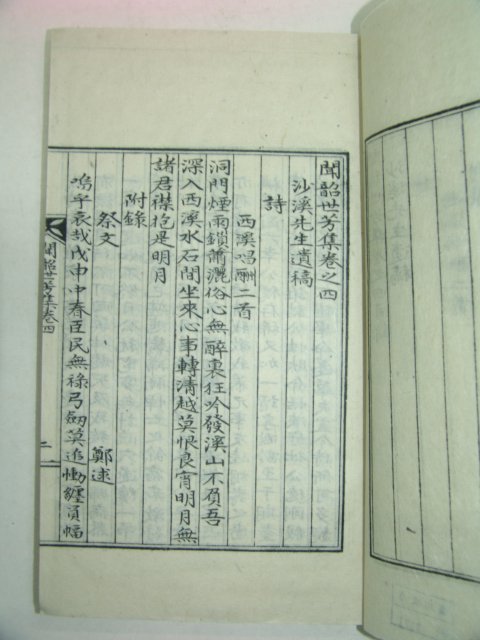 聞韶世芳集卷之四
沙溪先生遺稿
詩
西溪唱酬二首
洞門煙雨鎖蕭灑俗心無醉裏狂吟發溪山不負吾
深入西溪水石間坐來心事轉清越莫恨良宵明月無
諸君襟抱是明月
附錄
祭文 鄭逑
嗚乎哀哉戊申中春臣民無祿弓劒莫追慟纏員幅
聞韶世芳集卷四